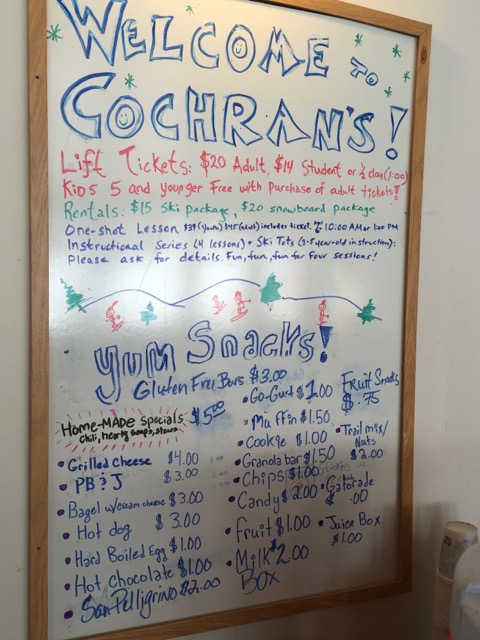 WELCOME TO
COCHRAN'S!
Lift Tickets: $20 Adult, $14 Student or ½ day (1:00)
Kids 5 and younger Free with Purchase of adult tickets!!
Rentals: $15 Ski package, $20 snowboard package
One-Shot Lesson $39 (youth) $45 (adult) includes ticket, 10:00 AM or 1:00 PM
Instructional Series (4 lessons) + Ski Tots (3-5 year-old instruction):
Please ask for details. Fun, fun, fun for four sessions!
Yum Snacks!
Gluten Free Bars $3.00
Home-MADE Specials $5.00
Chili, hearty soups, stews
• Grilled Cheese $4.00
• PB & J $3.00
• Bagel w/cream cheese $3.00
• Hot dog $3.00
• Hard Boiled Egg $1.00
• Hot Chocolate $1.00
• San Pelligrino $2.00
• Go-Gurt $1.00
• Muffin $1.50
• Cookie $1.00
• Granola bar $1.50
• Chips $1.00
• Candy $2.00
• Fruit $1.00
• Milk $2.00
BOX
Fruit Snacks
$.75
• Trail mix/
Nuts
$2.00
• Gatorade
.00
• Juice Box
$1.00